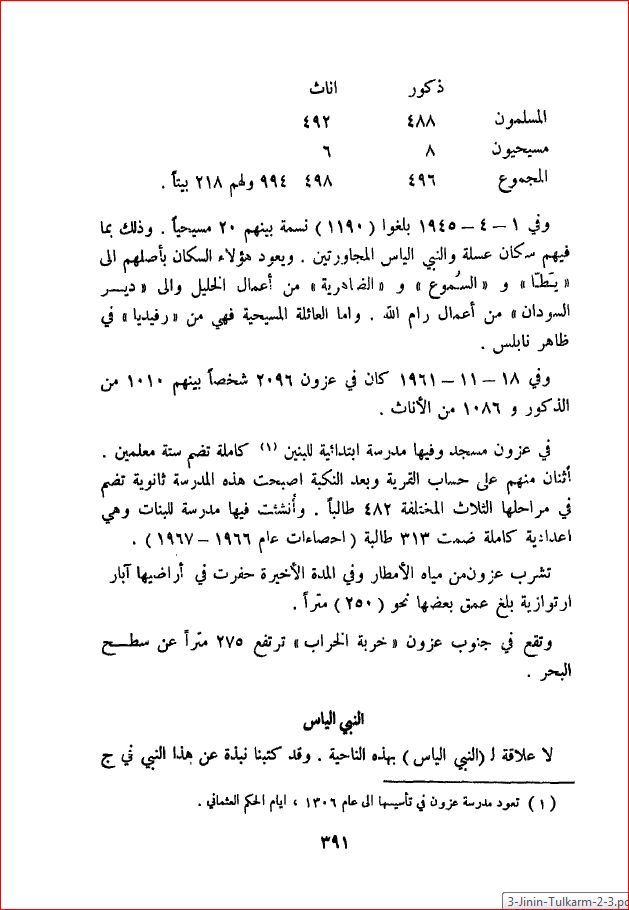 ذكور اناث
المسلمون ٤٨٨ ٤٩٢
مسيحيون ٨ ٦
المجموع ٤٩٦ ٤٩٨ ٩٩٤ ولهم ٢١٨ بيتاً .
وفي ١ – ٤ – ١٩٤٥ بلغوا (١١٩٠) نسمة بينهم ٢٠ مسيحياً . وذلك بما
فيهم سكان عسلة والنبي الياس المجاورتين . ويعود هؤلاء السكان بأصلهم الى
« يَطّا » و « السّموع » و « الظاهرية » من أعمال الخليل والى « ديـــر
السودان » من أعمال رام الله . واما العائلة المسيحية فهي من « رفيديا » في
ظاهر نابلس .
وفي ١٨ – ١١ – ١٩٦١ كان في عزون ٢٠٩٦ شخصاً بينهم ١٠١٠ من
الذكور و ١٠٨٦ من الأناث .
في عزون مسجد وفيها مدرسة ابتدائية للبنين (١) كاملة تضم ستة معلمين .
أثنان منهم على حساب القرية وبعد النكبة اصبحت هذه المدرسة ثانوية تضم
في مراحلها الثلاث المختلفة ٤٨٢ طالباً . وأنشئت فيها مدرسة للبنات وهي
اعدادية كاملة ضمت ٣١٣ طالبة ( احصاءات عام ١٩٦٦ – ١٩٦٧ ) .
تشرب عزون من مياه الأمطار وفي المدة الأخيرة حفرت في أراضيها آبار
ارتوازية بلغ عمق بعضها نحو ( ٢٥٠ ) متراً .
وتقع في جنوب عزون « خربة الخراب » ترتفع ٢٧٥ متراً عن سطـــح
البحر .
النبي الياس
لا علاقة لـ (النبي الياس ) بهذه الناحية . وقد كتبنا نبذة عن هذا النبي في ج
( ١ ) تعود مدرسة عزون في تأسيسها الى عام ١٣٠٦ ، ايام الحكم العثماني .
٣٩١
3-Jinin-Tulkarm-2-3.pd